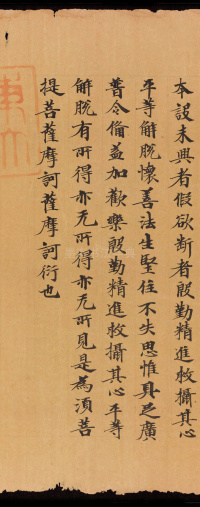 本設未興者假欲斷者殷勤精進牧攝其心
平等解脫懷善法生堅住不失思惟具足廣
普令俻益加歡樂殷勤精進牧攝其心平等
解脫有所得亦无所得亦无所見是為湏菩
提菩薩摩訶薩摩訶衍也